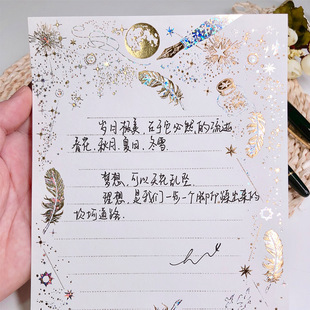 岁月极美，在于它必然的流逝。
春花、秋月、夏日、冬雪。
梦想，可以天花乱坠，
理想，是我们一步一个脚印踩出来的
坎坷道路。